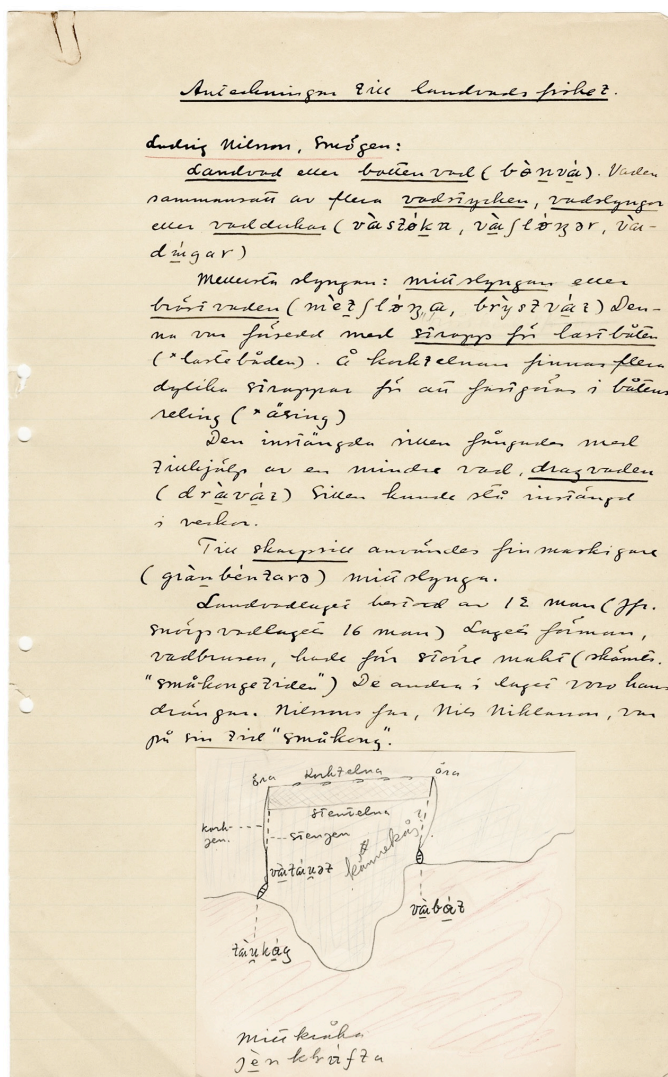 Anteckningar till landvadsfisket.
Ludvig Nilsson, Smögen:
Landvad eller bottenvad (bònvà). Vaden
sammansatt av flera vadstycken, vadslyngor
eller vaddukar (
Mellersta slyngan: mittslyngan eller
bröstvaden (
na var försedd med stropp för lastbåten
(*lastebåden). Å korktelnan finnas flera
dylika stroppar för att fastgöras i båtens
reling (*åsing)
Den instängda sillen fångades med
tillhjälp av en mindre vad, dragvaden
( dràváz) Sillen kunde stå instängd
i veckor.
Till skarpsill användes finmaskigare
( ) mittslynga.
Landvadlaget bestod av 12 man (jfr.
snörpvadlaget 16 man) Lagets förman,
vadbrusen, hade för större makt (skämts.
"småkongetiden") De andra i laget voro hans
drängar. Nilssons far, Nils Niklasson, var
på sin tid "småkong".
öra korktelna öra
stentelna
kork-
gen.
stengen
vàbáz
mittkråka